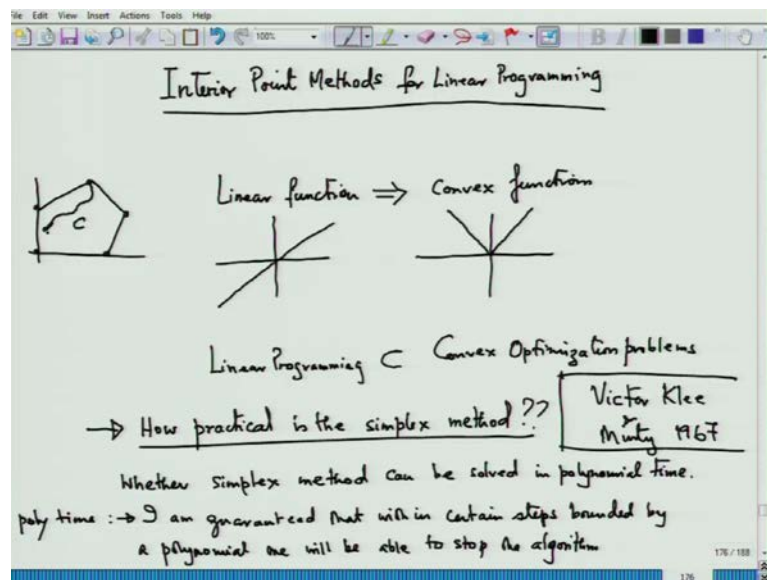 File Edit View Insert Actions Tools Help
100%
B I
Interior Point Methods for Linear Programming
C
Linear function ⇒ Convex functions
Linear Programming ⊂ Convex Optimization problems
→ How practical is the simplex method ??
Victor Klee
& Minty 1967
Whether simplex method can be solved in polynomial time.
poly time :→ I am guaranteed that within certain steps bounded by
a polynomial one will be able to stop the algorithm
176 / 188
176